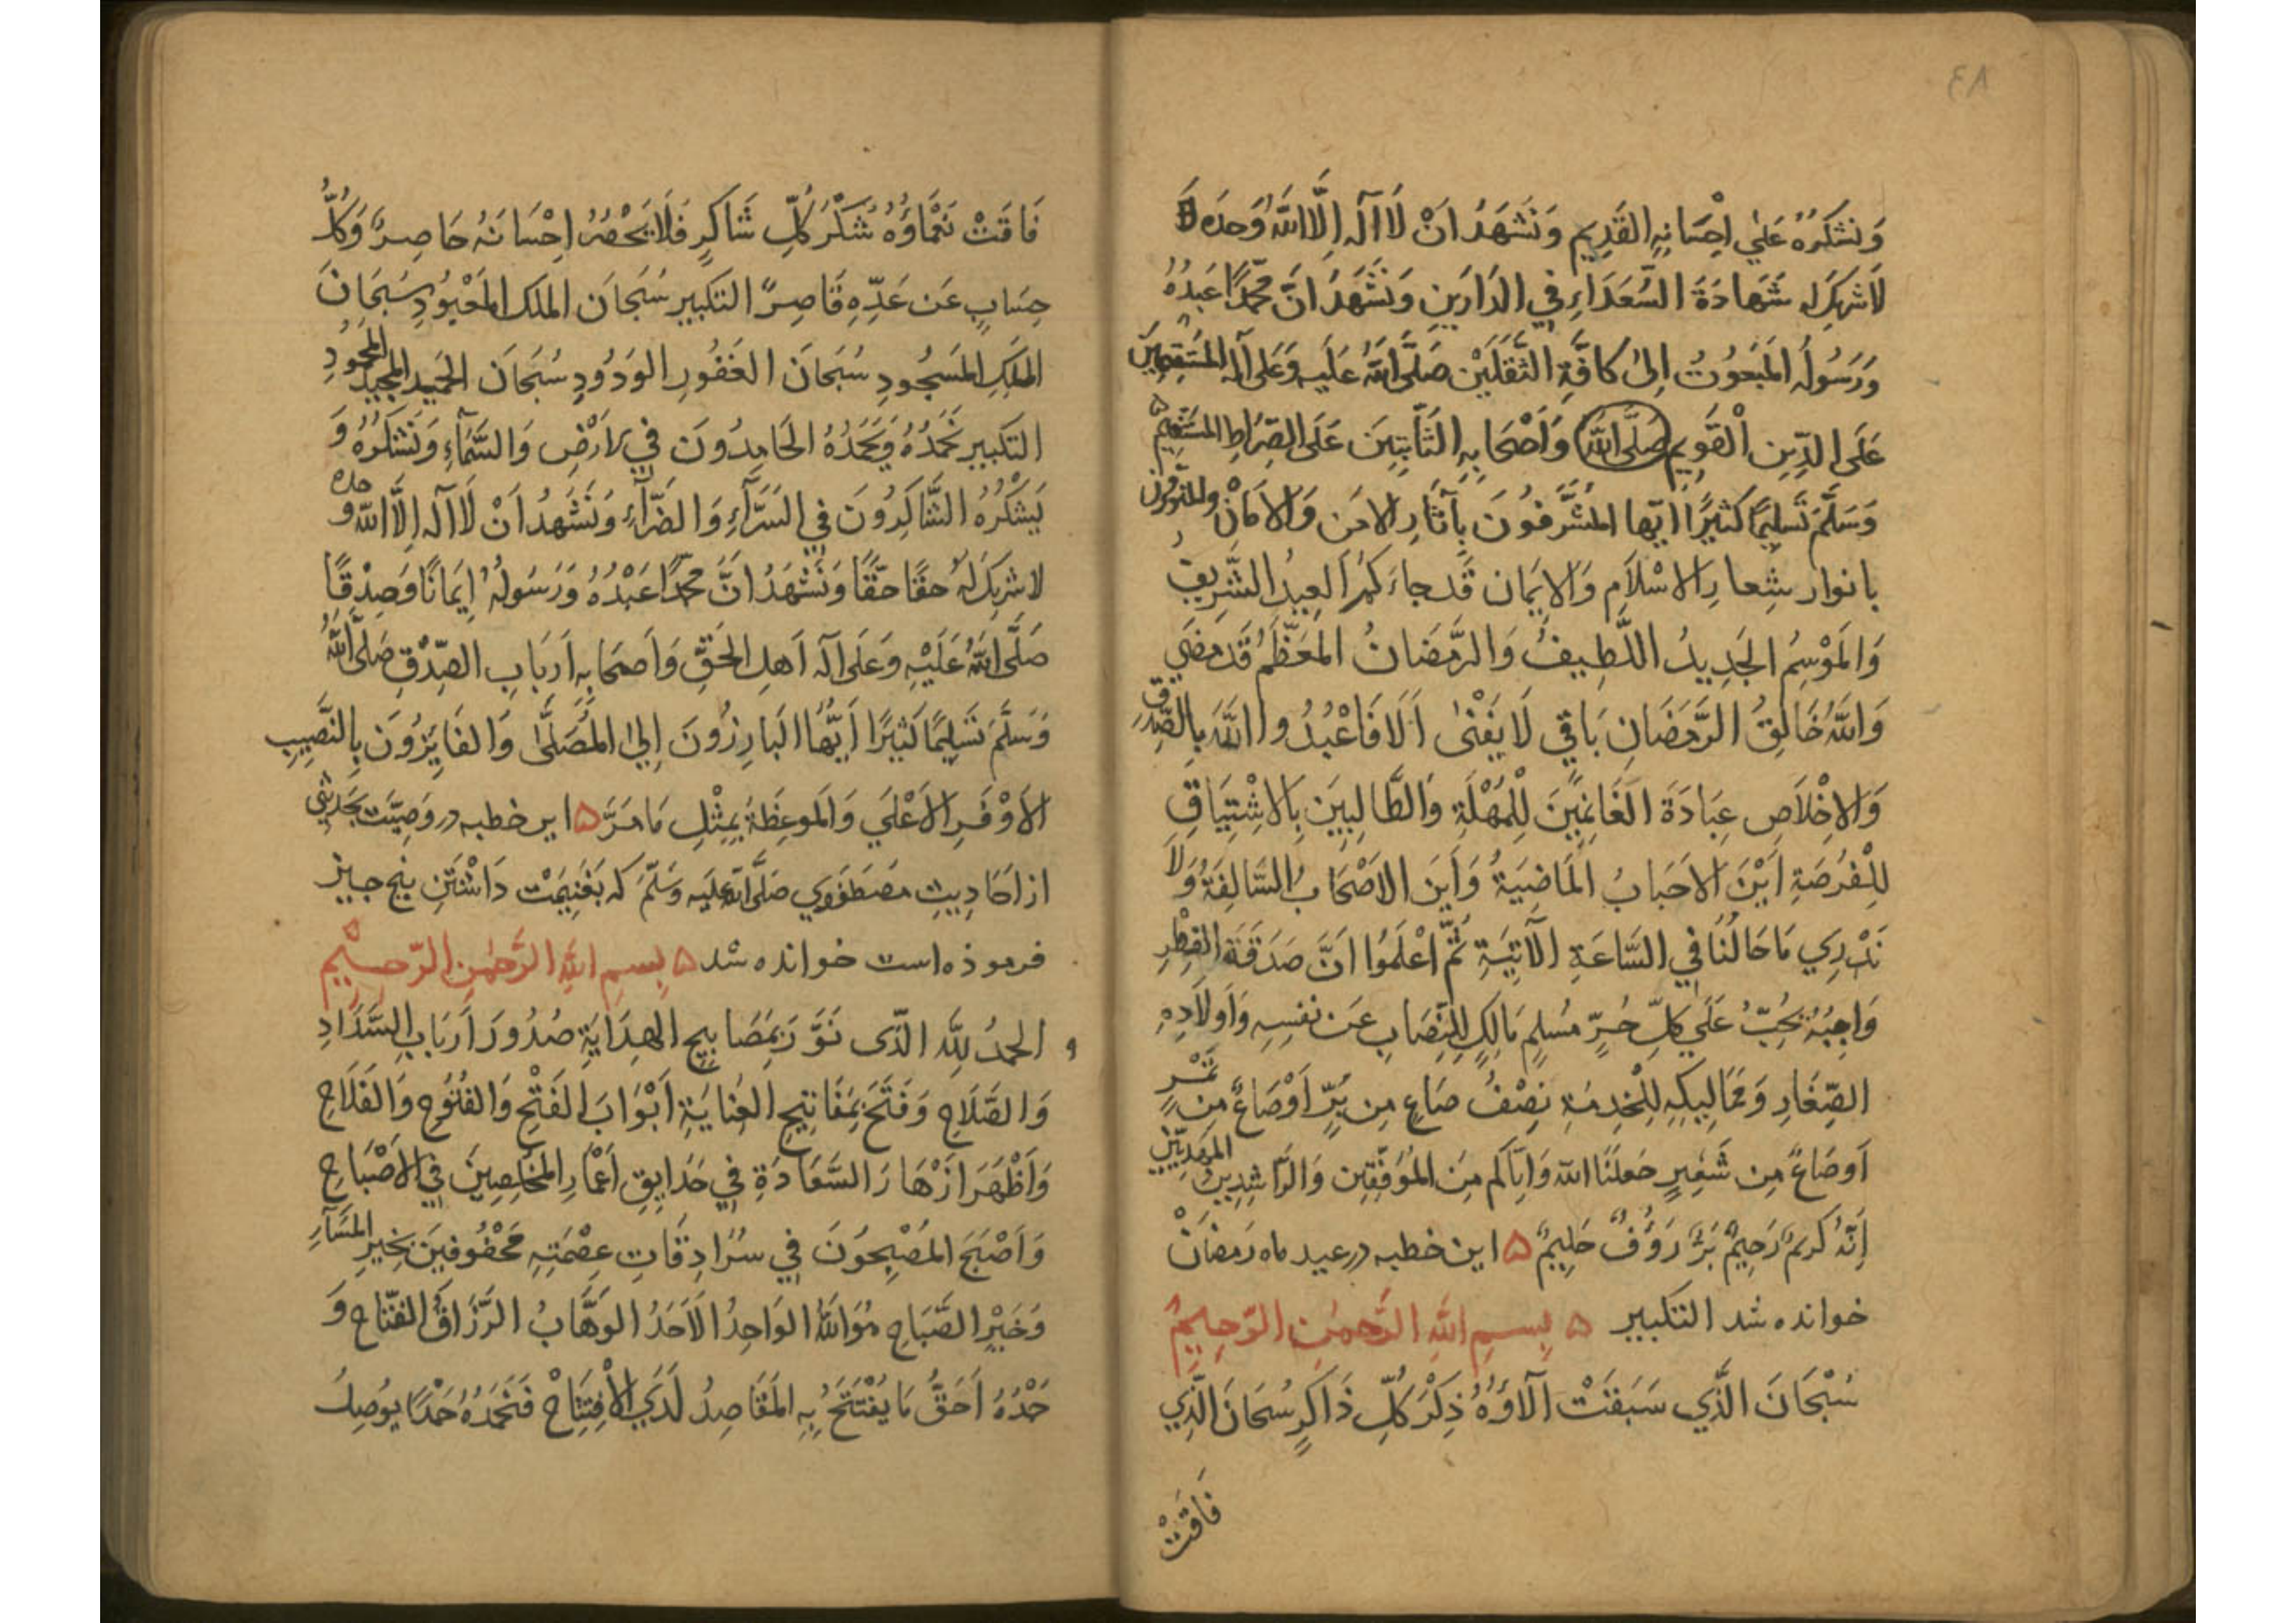 ٨٣
وَنَشْكُرُهُ عَلَى اِحْسَانِهِ القَدِيمِ وَنَشْهَدُ اَنْ لَا اِلَهَ اِلَّا اللّٰهُ وَحدَه
لَاشَرِيكَ لَه شَهَادَةَ السُّعَدَاءِ فِي الدَارَينِ وَنَشْهَدُ اَنَّ مُحَمَّدًا عَبدُهُ
وَرَسُولُه المَبْعُوثُ اِلىٰ كَافَّةِ الثَّقَلَيْن صَلَّى اللّٰهُ عَلَيه وَعَلى آله المُستَقِيمِينَ
عَلَى الدِّينِ الْقَوِيم صَلَّى اللّٰه وَاَصْحَابِهِ الثَّابِتِينَ عَلَى الصِّرَاطِ المُستَقِيم
وَسَلَّمَ تَسلِيمًا كَثِيرًا اَيّها المُشَرَّفُونَ بِآثَارِ الامَن وَالاَمَانْ والمنَوَّرُون
بانوار شِعارِ الاسْلَامِ وَالايمَان قَد جاءَكُم العِيدُ الشَّرِيفُ
وَالمَوْسِمُ الجَدِيدُ اللَّطِيفُ وَالرَّمَضَانُ المُعَظَّمُ قَد مَضَي
وَاللّٰهُ خَالِقُ الرَّمَضَانِ بَاقِي لَا يَفْنىٰ اَلَا فَاعْبُدُوا اللّٰهَ بِالصِّدقِ
وَالاِخْلَاصِ عِبَادَةَ الغَانِمِينَ لِلْمُهْلَةِ وَالطَّالِبِينَ بِالاشْتِيَاقِ
لِلْفُرصَةِ اَيْنَ الاَحبَابُ المَاضِيَةُ وَاَينَ الاَصْحَابُ السَّالِفَةُ وَلَا
نَدْرِي مَا حَالُنَا فِي السَّاعَةِ الآتِيَةِ ثُمَّ اعْلَمُوا اَنَّ صَدَقَةَ الفِطْرِ
وَاجِبَةٌ تَجِبُ عَلَي كلِّ حُرٍّ مُسلِمٍ مَالِكٍ لِلنِّصَابِ عَن نفسِه وَاَولَادِهِ
الصِّغَارِ وَمَمَالِيكِهِ لِلْخِدمَةِ نِصْفُ صَاعٍ مِن بُرٍّ اَوْ صَاعٌ مِن تَمْرٍ
اَو صَاعٌ مِن شَعِيرٍ جَعلَنَا اللّٰه وَاِيَّاكم مِنَ المُوَفَّقِين وَالرَّاشِدِينَ المَهْدِيِّينَ
اِنَّهُ كَرِيمٌ رَحِيمٌ بَرٌّ رَؤُفٌ حَلِيمٌ ۵ این خطبه در عید ماه رمضان
خوانده شد التکبیر ۵ بِسمِ اللّٰهِ الرَّحمٰنِ الرَّحِيمِ
سُبْحَانَ الَّذِي سَبَقَتْ آلَاؤُهُ ذِكْرَ كُلِّ ذَاكِرٍ سُبحَانَ الَّذِي
فَاقَتْ
فَاقَتْ نَعْمَاؤُهُ شُكْرَ كُلِّ شَاكِرٍ فَلَا يَحْصُرُ اِحْسَانَهُ حَاصِرٌ وَكُلُّ
حِسَابٍ عَن عَدِّهِ قَاصِرٌ التكبير سُبحَانَ الملك المَعْبُودِ سُبحَانَ
المَلِكِ المَسجُودِ سُبحَانَ الغَفُورِ الوَدُودِ سُبحَانَ الحَمِيدِ المَجِيدِ المَحمُودِ
التكبير نَحْمَدُهُ وَيَحْمَدُهُ الحَامِدُونَ فِي الاَرْضِ وَالسَّمَآءِ وَنَشْكُرُهُ وَ
يَشكُرُهُ الشَّاكِرُونَ فِي السَرَّآءِ وَالضَرَّآءِ وَنَشْهَدُ اَنْ لَا اِلَهَ اِلَّا اللّٰه وحده
لا شَرِيكَ لَهُ حقًا حَقًّا وَنَشْهَدُ اَنَّ مُحَمَّدًا عَبْدُهُ وَرَسُولُهُ اِيمَانًا وَصِدْقًا
صَلَّى اللّٰهُ عَلَيْهِ وَعَلَى آلِهِ اَهلِ الحَقِّ وَاَصحَابِهِ اَربَابِ الصِّدْقِ صَلَّى اللّٰهُ
وَسَلَّمَ تَسلِيمًا كَثِيرًا اَيُّهَا البَارِزُونَ اِلَى المُصَلَّىٰ وَالفَايِزُونَ بِالنَّصِيبِ
الاَوْفَرِ الاَعْلَي وَالمَوعِظَةُ بِمِثْلِ مَا مَرَّ ۵ این خطبه در وَصِيَّت بحَدِيثِی
از اَحَادِیثِ مُصطَفَوِی صَلَّى اللّٰه عَلَيه وَسَلَّمَ که بغَنِيمَتْ دَاشْتَنِ پنج چیز
فرموذه است خوانده شد ۵ بِسمِ اللّٰهِ الرَّحمٰنِ الرَّحِيمِ
الحمدُ لِلّٰهِ الَّذی نَوَّرَ بِمَصَابِيحِ الهِدَايَةِ صُدُورَ اَربَابِ السَّدَادِ
وَالصَّلَاحِ وَفَتَحَ بِمَفَاتِيحِ العِنايَةِ اَبْوَابَ الفَتْحِ وَالفُتُوحِ وَالفَلَاحِ
وَاَظْهَرَ اَزْهَارَ السَّعَادَةِ فِي حَدَايِقِ اَعْمَارِ المُخلِصِينَ فِي الاَصْبَاحِ
وَاَصْبَحَ المُصْبِحُونَ فِي سُرَادِقَاتِ عِصْمَتِهِ مَحْفُوفِينَ بِخَيرِ المَسَآءِ
وَخَيْرِ الصَّبَاحِ هُوَ اللّٰهُ الوَاحِدُ الاَحَدُ الوَهَّابُ الرَّزَاقُ الفتّاح وَ
حَمْدُهُ اَحَقُّ مَا يُفْتَتَحُ بِهِ المَقَاصِدُ لَدَي الاِفتِتَاحْ فَنَحْمَدُهُ حَمْدًا يُوصِلُ